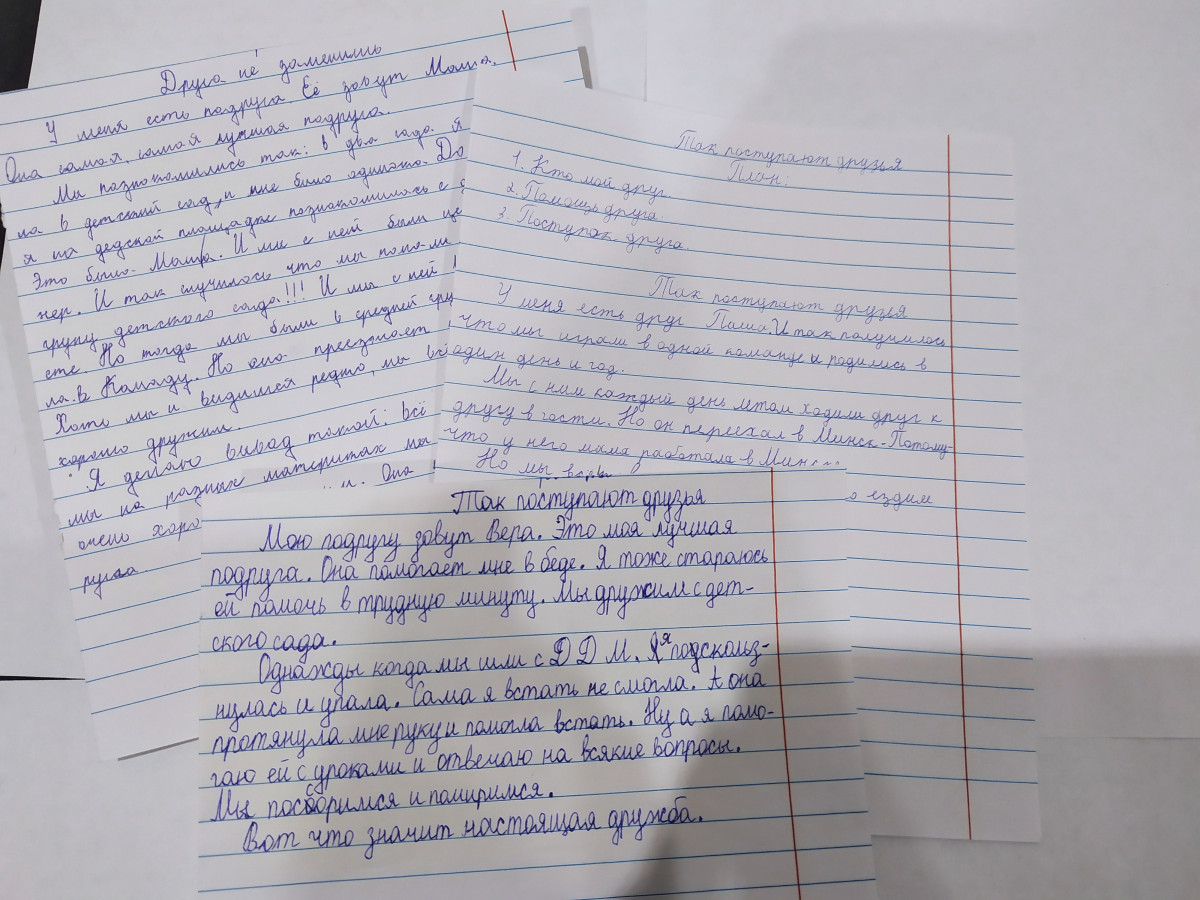 Друга не заменить
У меня есть подруга Её зовут Маша.
Она самая, самая лучшая подруга.
Ми познокомились так: в два года я
на в детский сад, и мне было одиноко. До
я на дедской площадке познакомилась с
Это было Маша. И ми с ней были це
нер. И так случилось что мы попали
групу детского сада!!! И мы с ней
ете. Но тогда мы были в средней гру
ла в Канаду. Но она преезжает
Хоть мы и видимся редко, мы
хорошо дружим.
Я делаю вивод такой: всё
мы на разних материках мы
очень хоро Она
руга.
Так поступают друзья
План:
1. Кто мой друг.
2. Помощь друга.
3. Поступок друга.
Так поступают друзья
У меня есть друг Паша. И так получилось
что мы играм в одной команде и родились в
один день и год.
Мы с ним каждый день летом ходили друг к
другу в гости. Но он переехал в Минск. Потому
что у него мама работала в Минске
Но мы
о ездим
Так поступают друзья
Мою подругу зовут Вера. Это моя лучшая
подруга. Она помогает мне в беде. Я тоже стараюсь
ей помочь в трудную минуту. Мы дружим с дет-
ского сада.
Однажды когда мы шли с Д Д М. Я подскольз-
нулась и упала. Сама я встать не смогла. А она
протянула мне руку и помогла встать. Ну а я помо-
гаю ей с уроками и отвечаю на всякие вопросы.
Мы поссоримся и помиримся.
Вот что значит настоящая дружба.